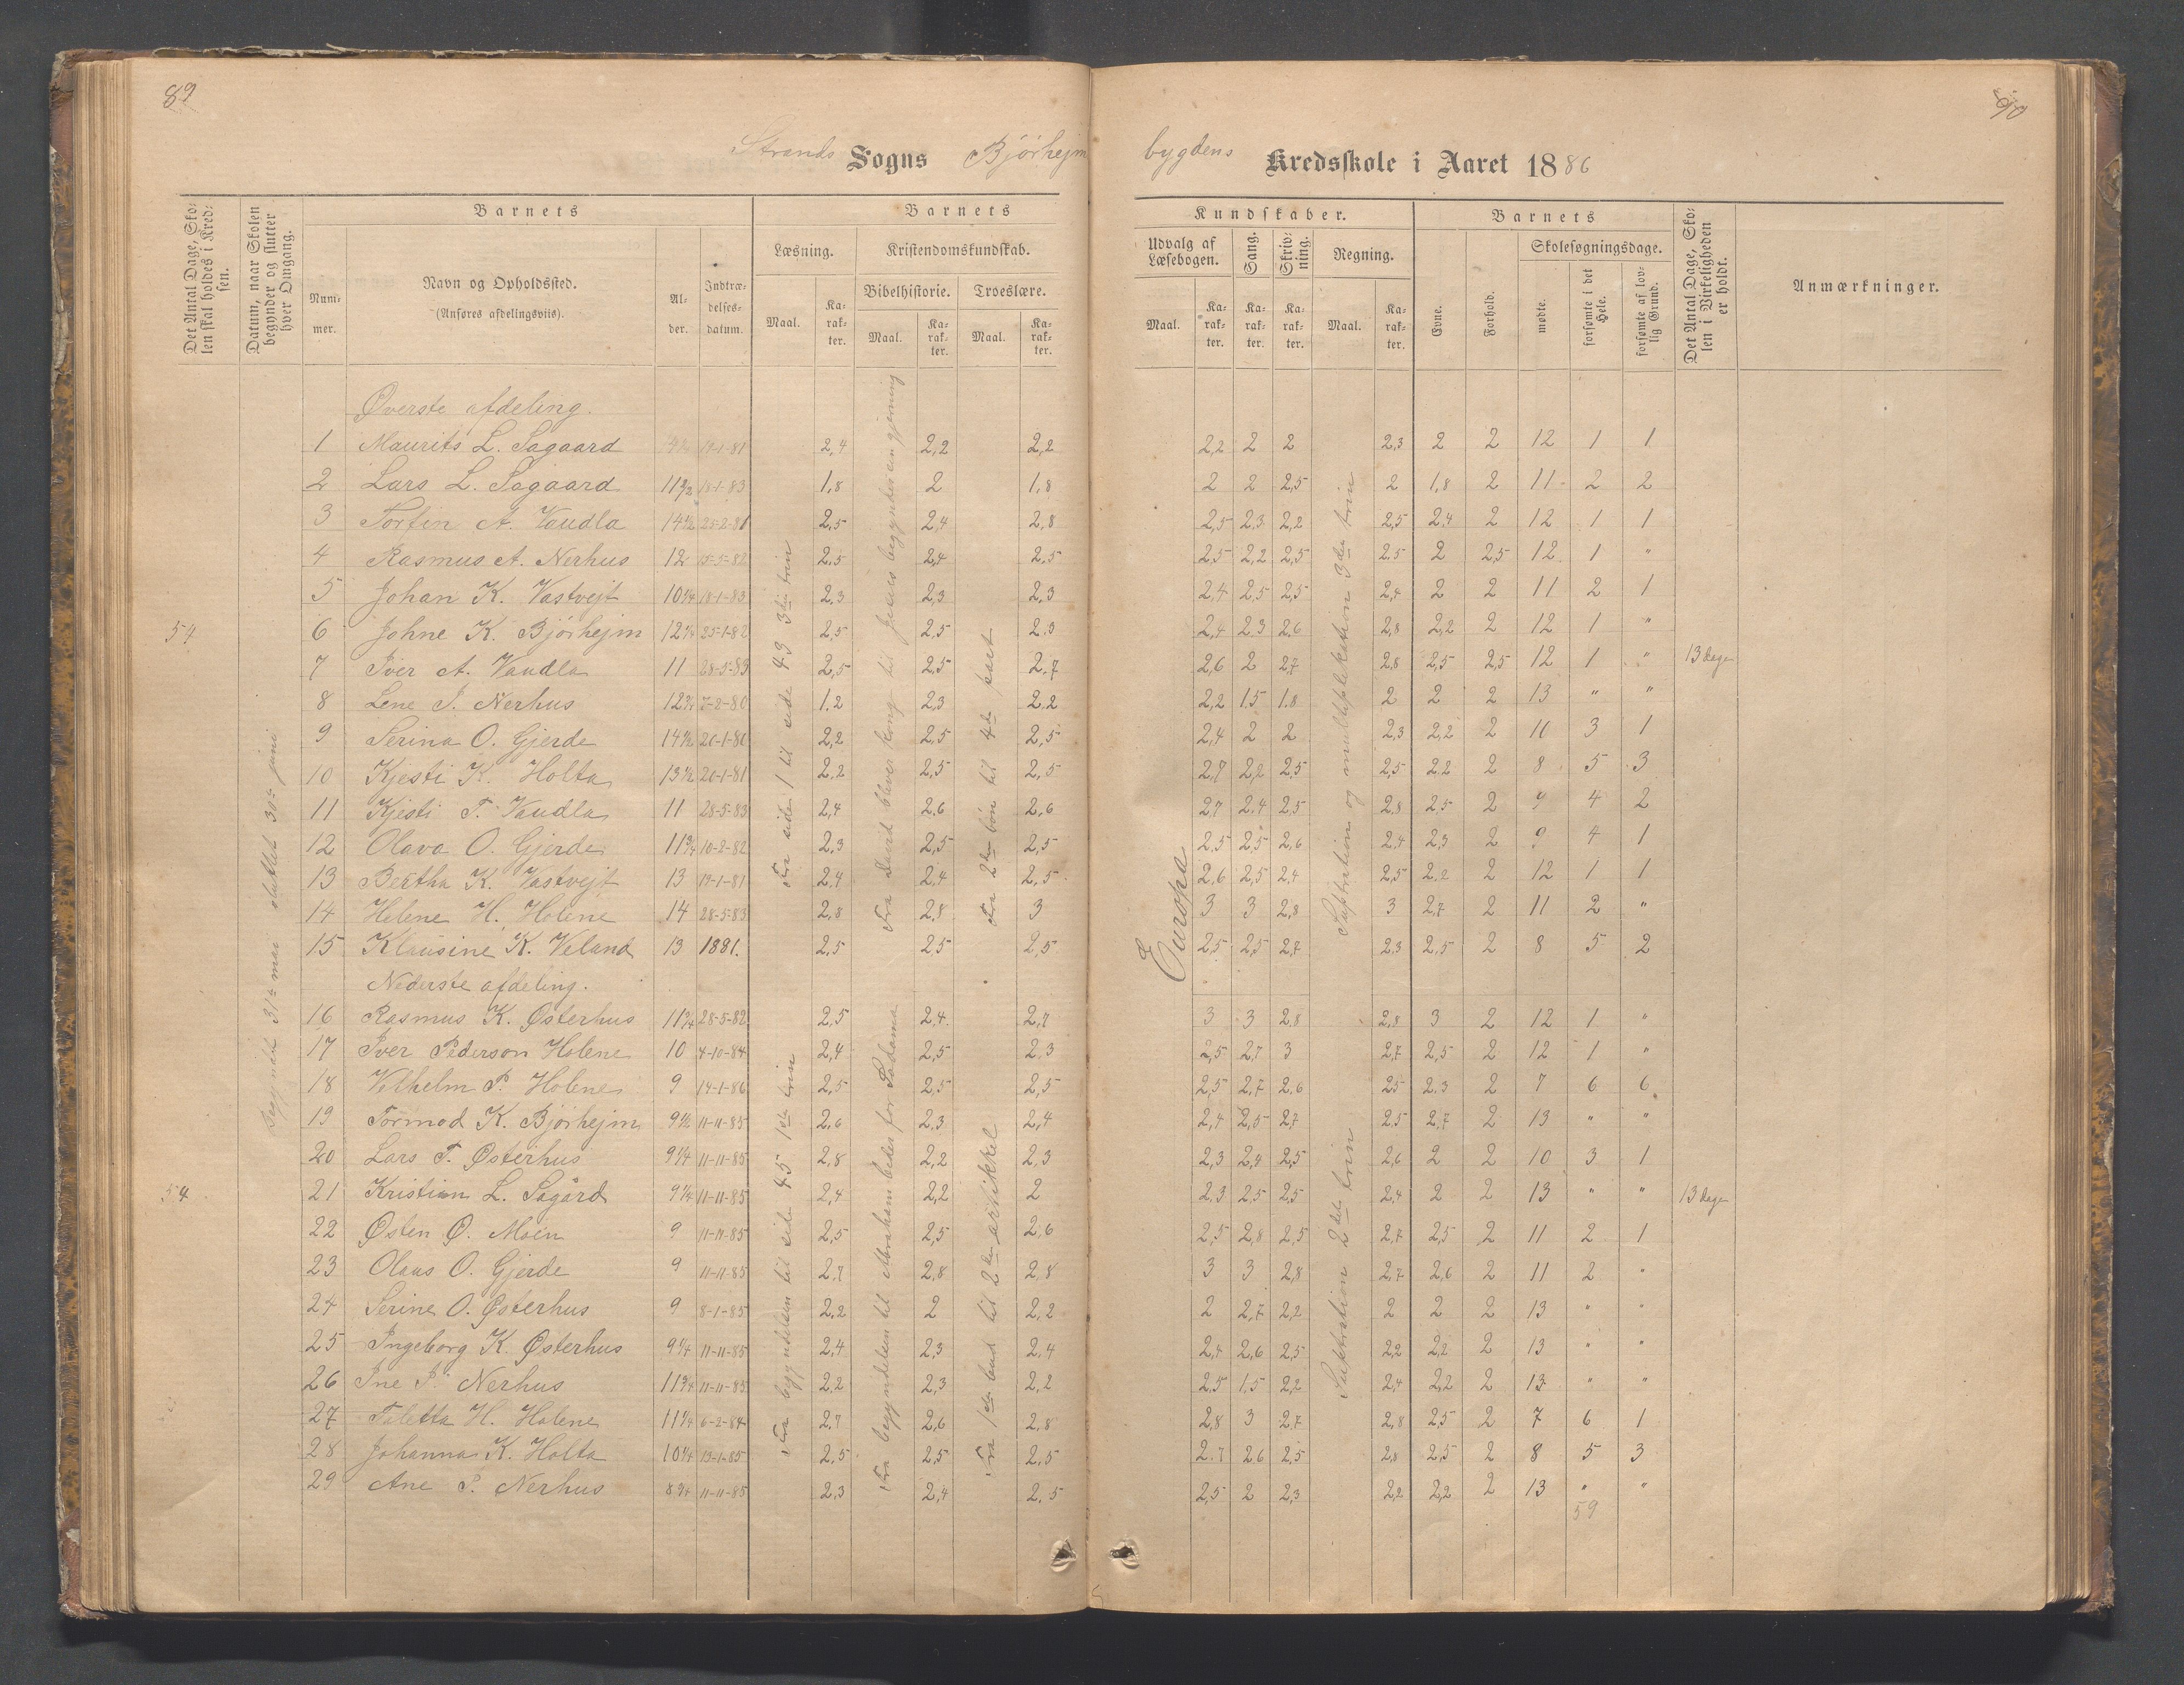 89
90
Strands Sogns Bjørhejm
bygdens Kredsskole i Aaret 1886
Det Antal Dage, Skolen skal holdes i Kredsen.
Datum, naar Skolen begynder og slutter hver Omgang.
Barnets
Nummer.
Navn og Opholdssted.
(Anføres afdelingsviis).
Alder.
Indtrædelsesdatum.
Barnets
Læsning.
Kristendomskundskab.
Bibelhistorie.
Troeslære.
Maal. Karakter. Maal. Karakter. Maal. Karakter.
Kundskaber.
Udvalg af Læsebogen.
Sang.
Skrivning.
Regning.
Maal. Karakter. Karakter. Karakter. Maal. Karakter.
Barnets
Evne.
Forhold.
Skolesøgningsdage.
mødte.
forsømte i det Hele.
forsømte af lovlig Grund.
Det Antal Dage, Skolen i Virkeligheden er holdt.
Anmærkninger.
Begyndt 31te mai sluttet 30te juni
Fra side 1 til side 43 3die trin
Fra David bliver konge til begyndes
Fra 2den bøn til 4de part
Europa
Suptration og multiplikation 3die trin
Øverste afdeling.
1 Maurits L. Sagaard 19-1-81 2,4 2,2 2,2 2,2 2 2 2,3 2 2 12 1 1
2 Lars L. Sagaard 11 1/2 18-1-83 1,8 2 1,8 2 2 2,5 2 1,8 2 11 2 2
3 Torfin A. Vaudla 14 1/2 25-2-81 2,5 2,4 2,8 2,5 2,3 2,2 2,5 2,4 2 12 1 1
4 Rasmus A. Nerhus 12 15-5-82 2,5 2,4 2,5 2,5 2,2 2,5 2,5 2 2,5 12 1 "
5 Johan K. Vastvejt 10 1/4 18-1-83 2,3 2,3 2,3 2,4 2,5 2,5 2,4 2 2 11 2 1
54 6 Johne K. Bjørhejm 12 1/4 25-1-82 2,5 2,5 2,3 2,4 2,3 2,6 2,8 2,2 2 12 1 "
7 Iver A. Vaudla 11 28-5-83 2,5 2,5 2,7 2,6 2 2,7 2,8 2,5 2,5 12 1 " 13 dage
8 Lene I. Nerhus 12 3/4 7-2-80 1,2 2,3 2,2 2,2 1,5 1,8 2 2 2 13 " "
9 Serina O. Gjerde 14 1/2 20-1-80 2,2 2,5 2,5 2,4 2 2 2,3 2,2 2 10 3 1
10 Kjesti K. Holta 13 1/2 20-1-81 2,2 2,5 2,5 2,7 2,2 2,5 2,5 2,2 2 8 5 3
11 Kjesti T. Vaudla 11 28-5-83 2,4 2,6 2,6 2,7 2,4 2,5 2,8 2,5 2 9 4 2
12 Olava O. Gjerde 11 3/4 10-2-82 2,3 2,5 2,5 2,5 2,5 2,6 2,4 2,3 2 9 4 1
13 Bertha K. Vastvejt 13 19-1-81 2,4 2,4 2,5 2,6 2,5 2,4 2,5 2,2 2 12 1 1
14 Helene H. Holene 14 28-5-83 2,8 2,8 3 3 3 2,8 3 2,7 2 11 2 "
15 Klausine K. Veland 13 1881. 2,5 2,5 2,5 2,5 2,5 2,7 2,3 2,5 2 8 5 2
Nederste afdeling.
Fra begyndelsen til side 45 1ste trin
Fra begyndelsen til Abraham beder for Sodoma
Fra 1ste bud til 2den artikkel
Suptration 2det trin
16 Rasmus K. Østerhus 11 3/4 28-5-82 2,5 2,4 2,7 3 3 2,8 2,8 3 2 12 1 "
17 Iver Pederson Holene 10 4-10-84 2,4 2,5 2,3 2,5 2,7 3 2,7 2,5 2 12 1 "
18 Vilhelm P. Holene 9 14-1-86 2,5 2,5 2,5 2,5 2,7 2,6 2,5 2,3 2 7 6 6
19 Tormod K. Bjørhejm 9 1/2 11-11-85 2,6 2,3 2,4 2,4 2,5 2,7 2,5 2,7 2 13 " "
20 Lars T. Østerhus 9 1/4 11-11-85 2,8 2,2 2,3 2,3 2,4 2,5 2,6 2 2 10 3 1
54 21 Kristian L. Sagård 9 1/4 11-11-85 2,4 2,2 2 2,3 2,5 2,5 2,4 2 2 13 " " 13 dage
22 Østen Ø. Moen 9 11-11-85 2,5 2,5 2,6 2,5 2,8 2,5 2,7 2,5 2 11 2 1
23 Olaus O. Gjerde 9 11-11-85 2,7 2,8 2,8 3 3 2,8 2,7 2,6 2 11 2 "
24 Serine O. Østerhus 9 8-1-85 2,2 2 2,2 2 2,7 2,2 2 2 2 13 " "
25 Ingeborg K. Østerhus 9 1/4 11-11-85 2,4 2,3 2,4 2,4 2,6 2,5 2,2 2,2 2 13 " "
26 Ine P. Nerhus 11 3/4 11-11-83 2,2 2,3 2,2 2,5 1,5 2,2 2,4 2,2 2 13 " "
27 Taletta H. Holene 11 1/4 6-2-84 2,7 2,6 2,8 2,8 3 2,7 2,8 2,5 2 7 6 1
28 Johanna K. Holta 10 1/4 13-1-85 2,5 2,5 2,5 2,7 2,6 2,5 2,8 2,5 2 8 5 3
29 Ane P. Nerhus 8 3/4 11-11-85 2,3 2,4 2,5 2,5 2 2,3 2,2 2,2 2 13 " "
59